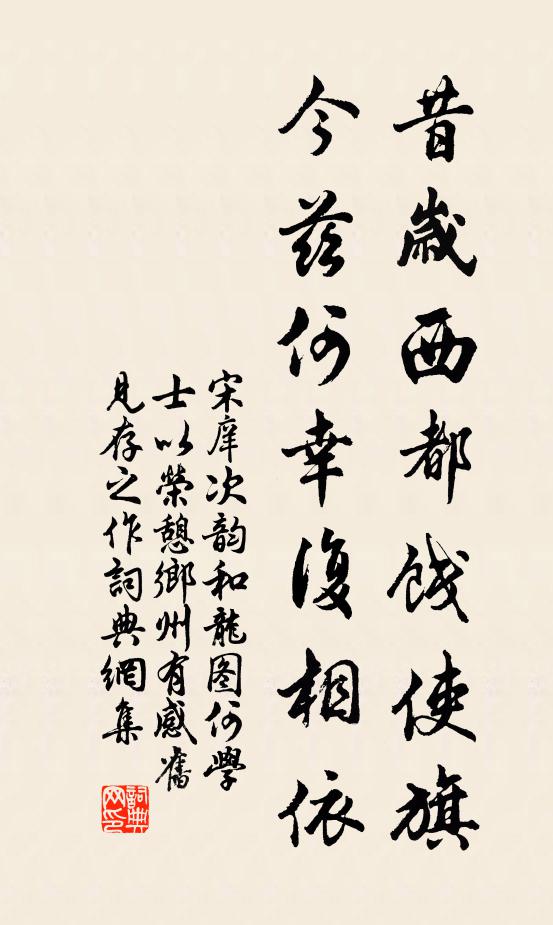 昔歲西都餞使旗
今茲何幸復相依
宋庠次韵和龍图何學
士以榮憩鄉州有感舊
見存之作詞典網集
詞典网印